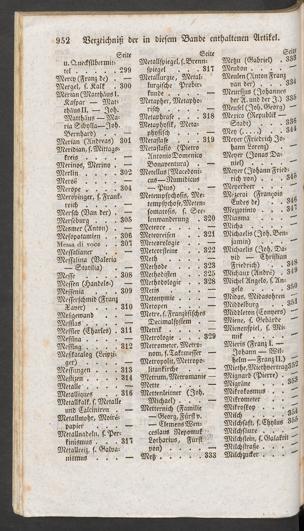 952 Verzeichniß der in diesem Bande enthaltenen Artikel.
Seite
u. Quecksilbermit-
tel 299
Mercy (Franz de) —
Mergel, s. Kalk 300
Merian (Matthäus I.
Kaspar — Mat-
thäus II. — Joh.
Matthäus — Ma-
ria Sibylla — Joh.
Bernhard) —
Merian (Andreas) 301
Meridian, s. Mittags-
kreis —
Merinos, Merino —
Merlin 302
Meroë —
Merope 304
Merovinger, s. Frank-
reich —
Mersch (Van der) —
Merseburg 305
Mesmer (Anton) —
Mesopotamien 306
Messa di voce 307
Messalianer —
Messalina (Valeria
— Statilia) —
Messe 308
Messen (Handels-) —
Messenien 309
Messerschmid (Franz
Xaver) 310
Meßgewand —
Messias —
Messier (Charles) 311
Messina —
Messing 312
Meßkatalog (Leipzi-
ger) —
Messungen 313
Mestizen 314
Metalle —
Metalliques 316
Metallkalk, s. Metalle
und Calciniren —
Metallmohr, Moiré-
papier —
Metallnadeln, s. Per-
kinismus 317
Metallreiz, s. Galva-
nismus —
Seite
Metallspiegel, s. Brenn-
spiegel 317
Metallurgie, Metal-
lurgische Probir-
kunde —
Metapher, Metapho-
risch —
Metaphrase 318
Metaphysik, Meta-
physisch —
Metastase 319
Metastasio (Pietro
Antonio Domenico
Bonaventura) —
Metellus (Macedoni-
cus — Numidicus
— Pius) —
Metempsychosis, Me-
tempsychose, Metem-
somatosis, s. See-
lenwanderung 320
Meteore —
Meteorstein 321
Meteorologie —
Meteorsteine 322
Meth —
Methode 323
Methodisten 325
Methodologie 328
Metin —
Metonymie —
Metopen —
Metre, s. Französisches
Decimalsystem —
Metrik —
Metrologie 329
Metrometer, Metro-
nom, s. Taktmesser —
Metropolis, Metropo-
litankirche —
Metrum, Metromanie —
Mette —
Mettenleiter (Joh.
Michael) —
Metternich (Familie
— Georg, Fürst v.
— Clemens Wen-
ceslaus Nepomuk
Lotharius, Fürst
von) —
Metz 333
Seite
Metzu (Gabriel) 333
Meudon —
Meulen (Anton Franz
van der) 334
Meursius (Johannes
der Ä. und der J.) 335
Meusel (Joh. Georg) —
Mexico (Republik —
Stadt) 336
Mey 344
Meyer (Friedrich Jo-
hann Lorenz) —
Meyer (Jonas Da-
niel) —
Meyer (Johann Fried-
rich von) 345
Meyerbeer —
Mézerai (François
Eudes de) 346
Mezzotinto 347
Miasma —
Micha —
Michaelis (Joh. Ben-
jamin) —
Michaelis (Joh. Da-
vid — Christian
Friedrich) 348
Michaux (André) 349
Michel Angelo, s. An-
gelo 350
Midas, Midasohren —
Middelburg 351
Middleton (Conyers) —
Miene, s. Gebärde —
Mienenspiel, s. Mi-
mik —
Mieris (Franz I. —
Johann — Wil-
helm — Franz II.) —
Miethe, Miethvertrag 352
Mignard (Pierre) —
Migräne —
Mikrokosmus —
Mikrometer —
Mikroskop —
Milch —
Milchsaft, s. Chylus 355
Milchsäure —
Milchstein, s. Galaktit —
Milchstraße —
Milchzucker —